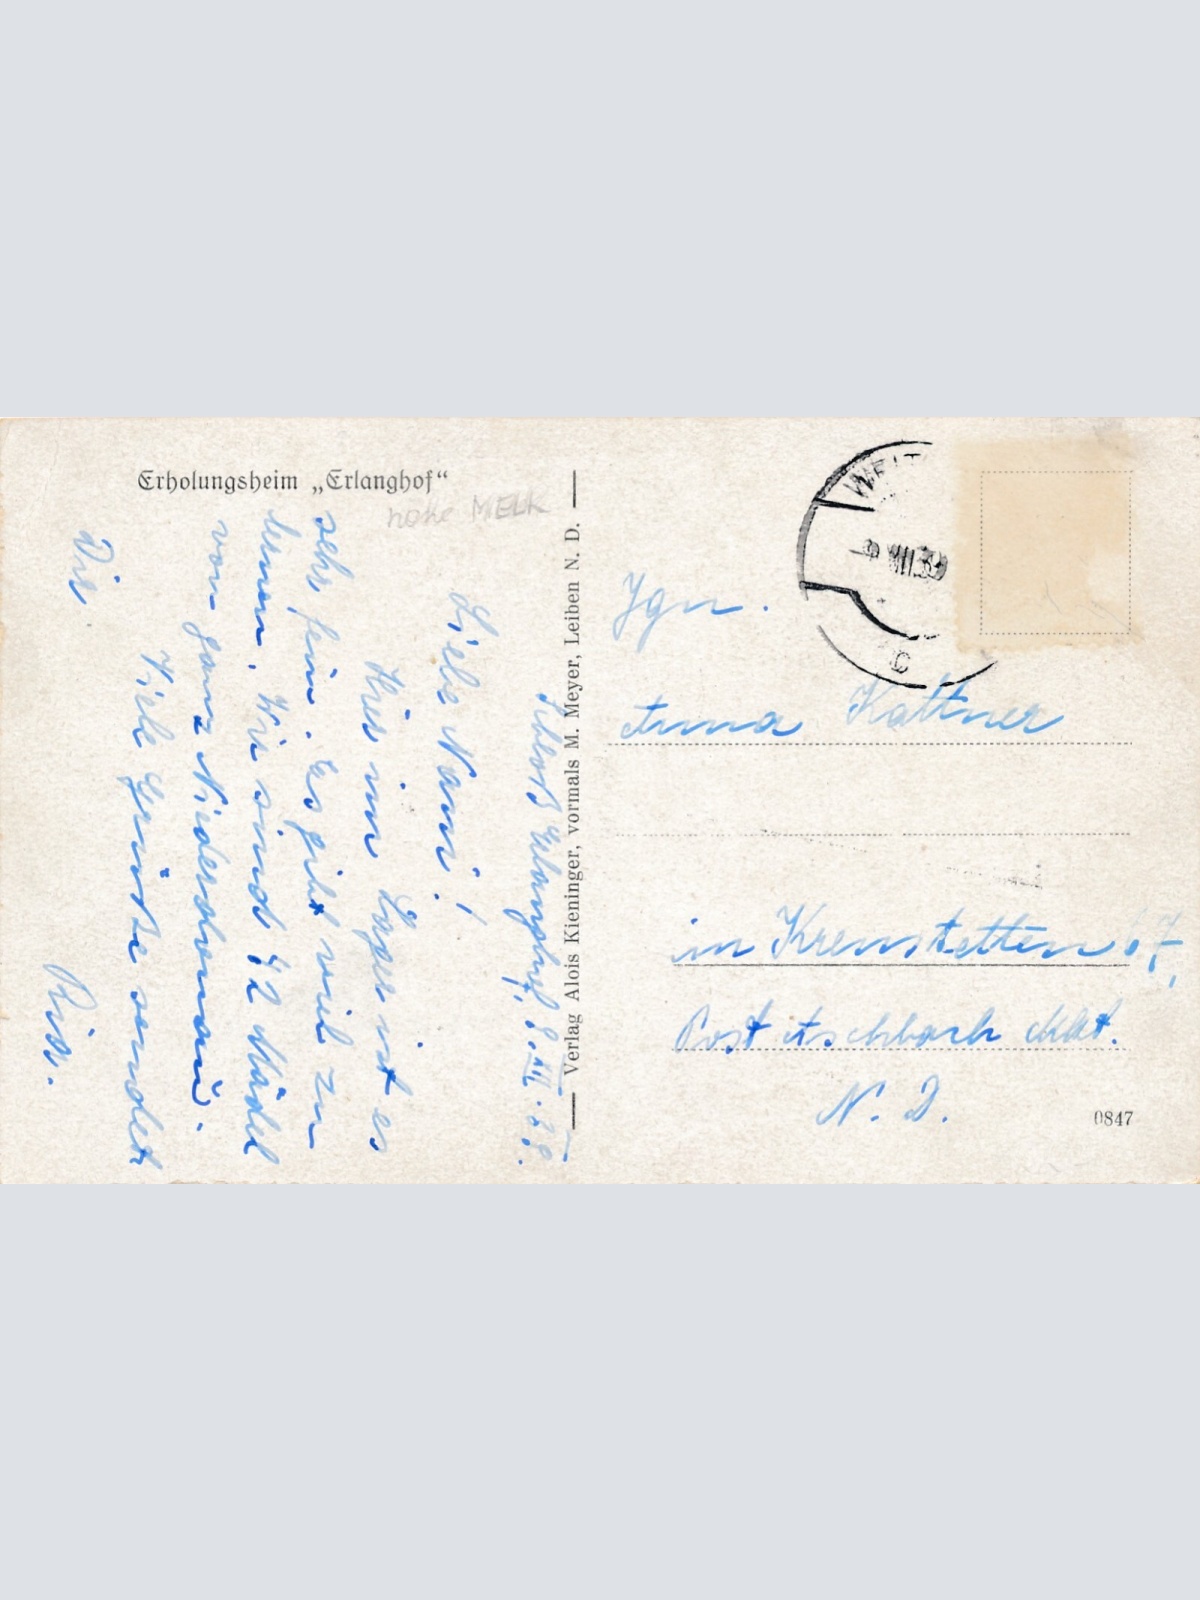 Erholungsheim „Erlanghof“
nähe MELK
Schloß Erlanghof, 8.III.38.
Liebe Nani!
Hier im Lager ist es
sehr fein. Es gibt viel zu
lernen. Wir sind 42 Mädel
von ganz Niederdonau.
Viele Grüße sendet
Dir
Verlag Alois Kieninger, vormals M. Meyer, Leiben N. D.
WEIT
C
Anna Kattner
in Krenstetten 67,
Post Aschbach Mkt.
N. D.
0847